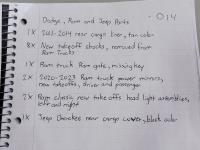 Dodge, Ram and Jeep Parts
014
1X 2011-2014 rear cargo liner, tan color
8X New takeoff shocks, removed from
Ram Trucks
1X Ram truck Ram gate, missing key
2X 2020-2023 Ram truck power mirrors,
new takeoffs, driver and passenger
2X Ram classic new take offs head light assemblies,
left and right
1X Jeep Cherokee rear cargo cover, black color